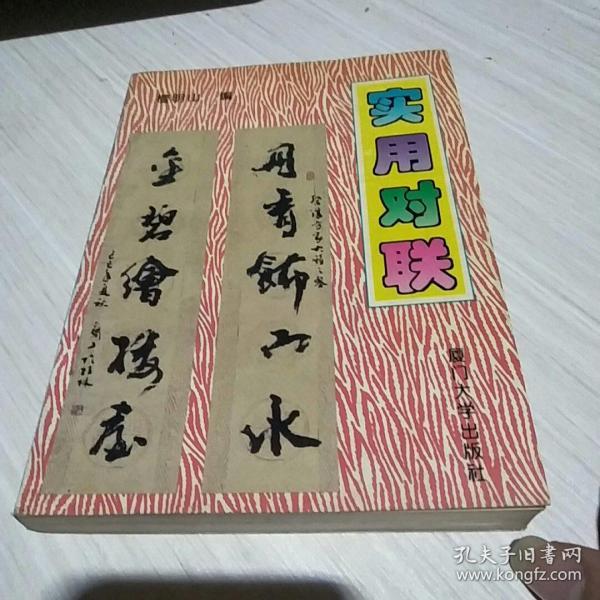 实用对联
明山 编
丹青飾山水
金碧繪樓臺
厦门大学出版社
孔夫子旧书网
www.kongfz.com